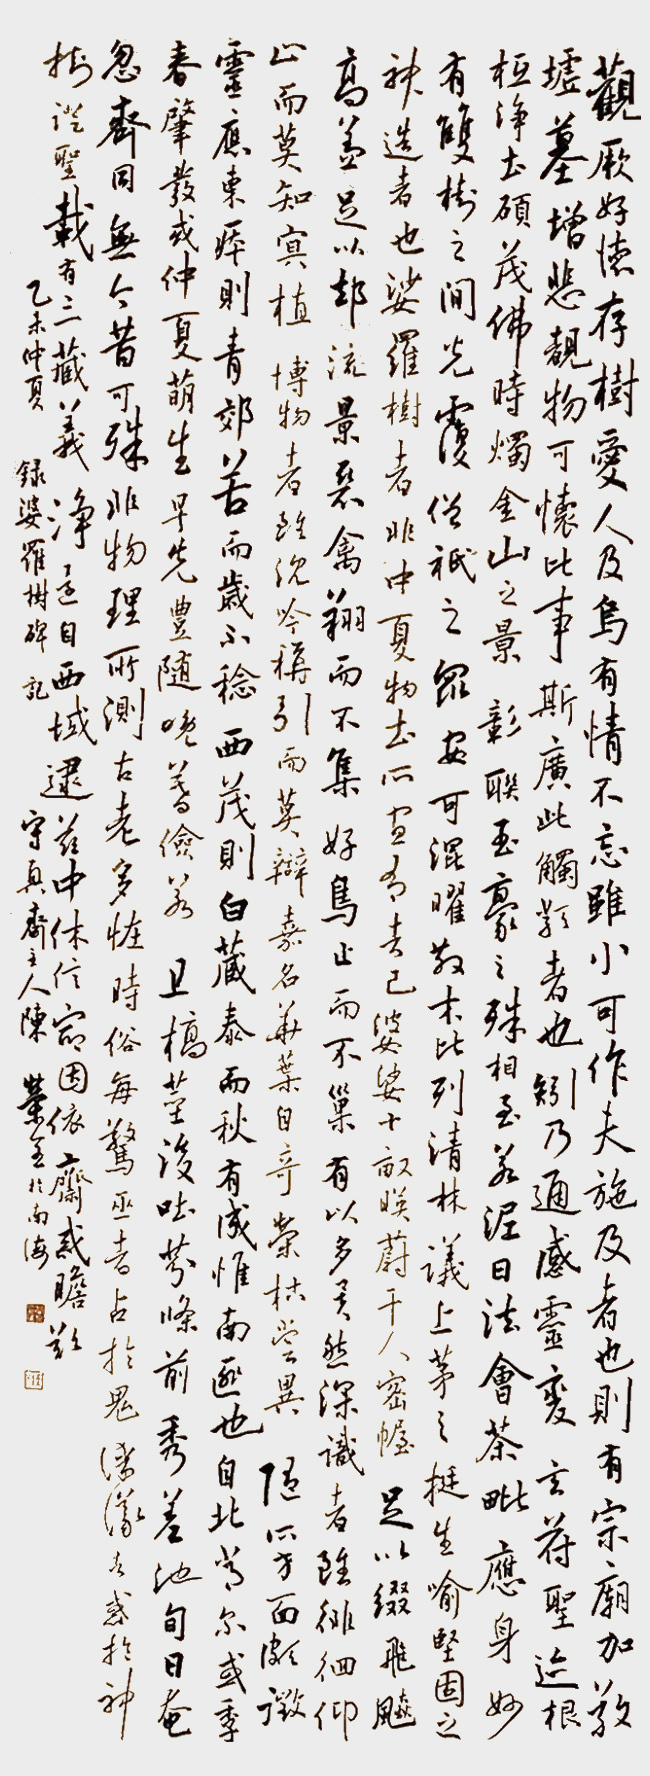 觀厥好德存樹愛人及烏有情不忘雖小可作夫施及者也則有宗廟加敬
墟墓增悲覩物可懷比事斯廣此觸類者也矧乃通感靈變玄符聖迹根
柢淨土碩茂佛時燭金山之景彰聯玉豪之殊相至若泥日法會茶毗應身妙
有雙樹之間光覆僧祇之眾安可混曜散木比列清林議上茅之挺生喻堅固之
神造者也娑羅樹者非中夏物土所宜有者已婆娑十畝映蔚千人密幄足以綴飛飈
高蓋足以却流景惡禽翔而不集好鳥止而不巢有以多矣然深識者雖徘徊仰
止而莫知冥植博物者雖沈吟稱引而莫辯嘉名華葉自奇榮枯嘗異隨所方面頗徵
靈應東瘁則青郊苦而歲不稔西茂則白藏泰而秋有成惟南匪也自北常尔或季
春肇發或仲夏萌生早先豐隨晚暮儉若且槁莖後吐芬條前秀差池旬日奄
忽齊同無今昔可殊非物理所測古老多怪時俗每驚巫者占於鬼謀議者惑於神
樹證聖載有三藏義淨還自西域逮茲中休信宿因依齋戒瞻歎
乙未仲夏 録娑羅樹碑記 守真齋主人陳榮全於南海